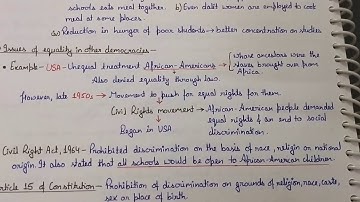 schools eats meal together. b) Even dalit women are employed to cook
meal at some places.
c) Reduction in hunger of poor students → better concentration on studies
Issues of equality in other democracies-
• Example - USA - Unequal treatment African-Americans → Whose ancestors were the
slaves brought over from
Africa.
Also denied equality through law.
However, late 1950s → Movement to push for equal rights for them.
Civil Rights movement → African-American people demanded
equal rights & an end to social
discrimination.
Began in USA
Civil Right Act, 1964 - Prohibited discrimination on the basis of race, religion or national
origin. It also stated that all schools would be open to African-American children.
Article 15 of Constitution - Prohibition of discrimination on grounds of religion, race, caste,
sex or place of birth.